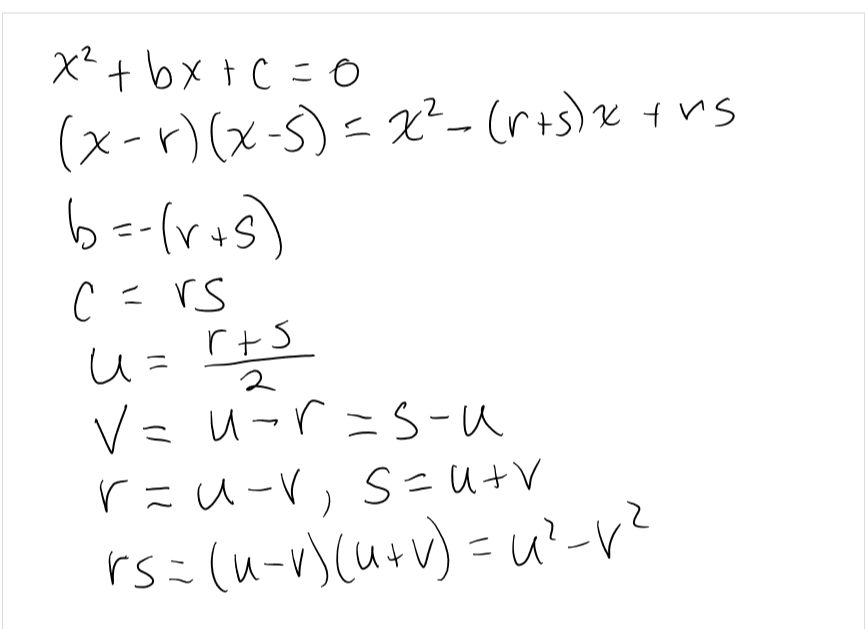 x² + bx + c = 0
(x - r)(x - s) = x² - (r+s)x + rs
b = -(r+s)
c = rs
u = (r+s)/2
v = u - r = s - u
r = u - v, s = u + v
rs = (u-v)(u+v) = u² - v²